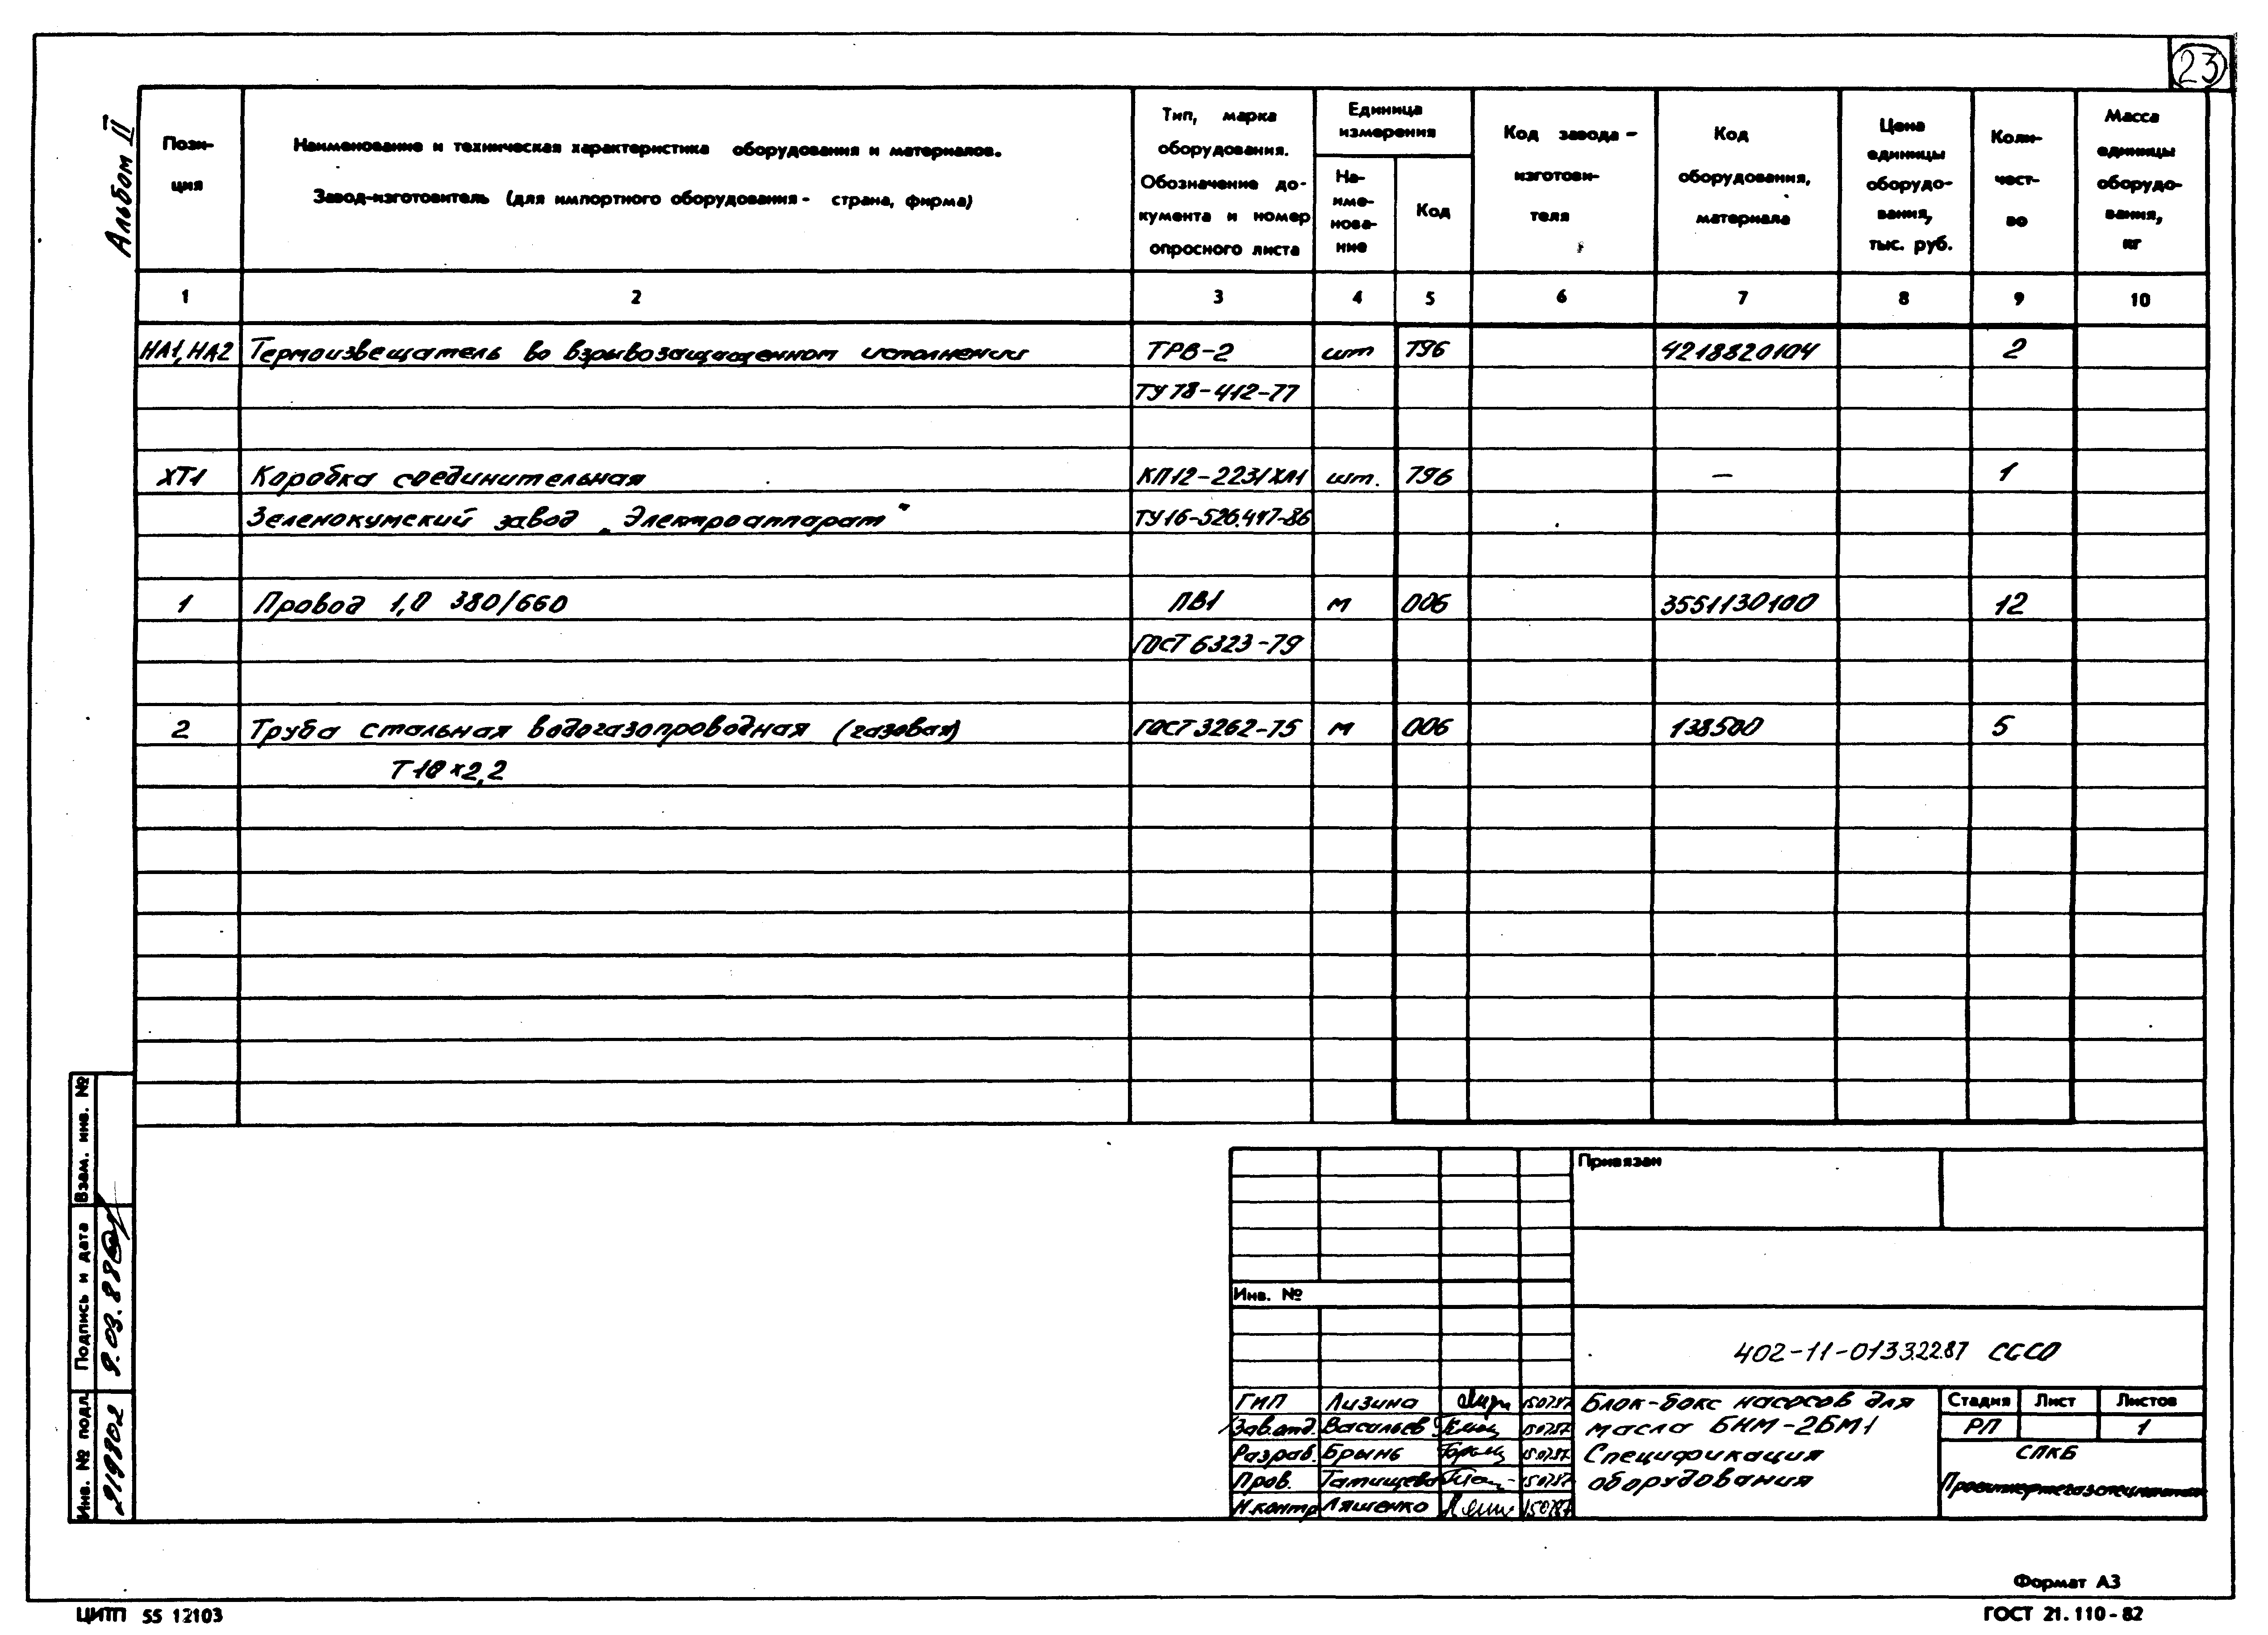 23
Альбом II
Пози-
ция
Наименование и техническая характеристика оборудования и материалов.
Завод-изготовитель (для импортного оборудования - страна, фирма)
Тип, марка
оборудования.
Обозначение до-
кумента и номер
опросного листа
Единица
измерения
На-
име-
нова-
ние
Код
Код завода -
изготови-
теля
Код
оборудования,
материала
Цена
единицы
оборудо-
вания,
тыс. руб.
Коли-
чест-
во
Масса
единицы
оборудо-
вания,
кг
1 2 3 4 5 6 7 8 9 10
НА1, НА2 Термоизвещатель во взрывозащищенном исполнении ТРВ-2 шт 796 4218820104 2
ТУ 78-412-77
ХТ1 Коробка соединительная КП12-2231ХЛ1 шт. 796 — 1
Зеленокумский завод „Электроаппарат" ТУ16-526.417-86
1 Провод 1,0 380/660 ПВ1 м 006 3551130100 12
ГОСТ 6323-79
2 Труба стальная водогазопроводная (газовая) ГОСТ 3262-75 м 006 138500 5
Т10×2,2
Взам. инв. №
Подпись и дата
9.03.88
Инв. № подл.
219802
Привязан
Инв. №
402-11-0133.22.87 СССО
ГИП Лизина 150787
Зав.отд. Васильев 150787
Разраб. Брынь 150787
Пров. Татищева 150787
Н.контр Ляшенко 150787
Блок-бокс насосов для
масла БНМ-2БМ1
Спецификация
оборудования
Стадия Лист Листов
РП 1
СПКБ
Формат А3
ЦИТП 55 12103
ГОСТ 21.110-82